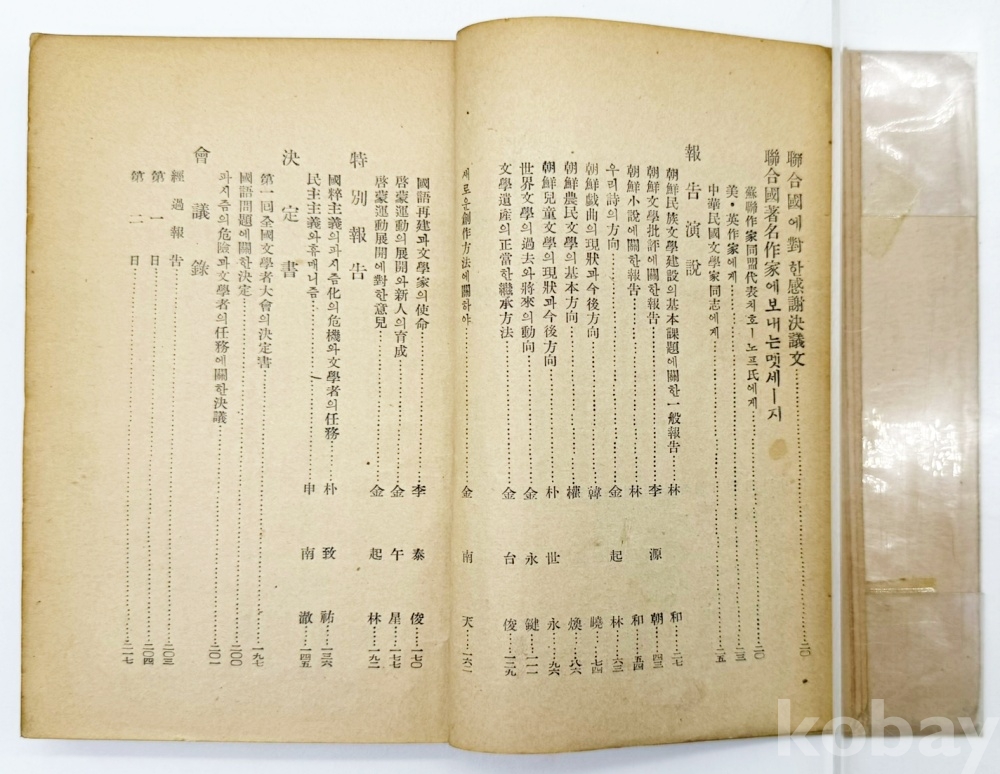 聯合國에對한感謝決議文……二〇
聯合國著名作家에보내는멧세—지
蘇聯作家同盟代表치호—노프氏에게……二〇
美·英作家에게……二三
中華民國文學家同志에게……二五
報告演說
朝鮮民族文學建設의基本課題에關한一般報告……林和……二七
朝鮮文學批評에關한報告……李源朝……四三
朝鮮小說에關한報告……林和……五四
우리詩의方向……金起林……六三
朝鮮戱曲의現狀과今後方向……韓曉……七四
朝鮮農民文學의基本方向……權煥……八六
朝鮮兒童文學의現狀과今後方向……朴世永……九六
世界文學의過去와將來의動向……金永鍵……一一一
文學遺産의正當한繼承方法……金台俊……一二九
새로운創作方法에關하야……金南天……一六二
國語再建과文學家의使命……李泰俊……一七〇
啓蒙運動의展開와新人의育成……金午星……一七七
啓蒙運動展開에對한意見……金起林……一九二
特別報告
國粹主義의파시즘化의危機와文學者의任務……朴致祐……一三六
民主主義와휴매니즘……申南澈……一四五
決定書
第一回全國文學者大會의決定書……一九七
國語問題에關한決定……二〇〇
파시즘의危險과文學者의任務에關한決議……二〇一
會議錄
經過報告……二〇三
第一日……二〇四
第二日……二一七
kobay